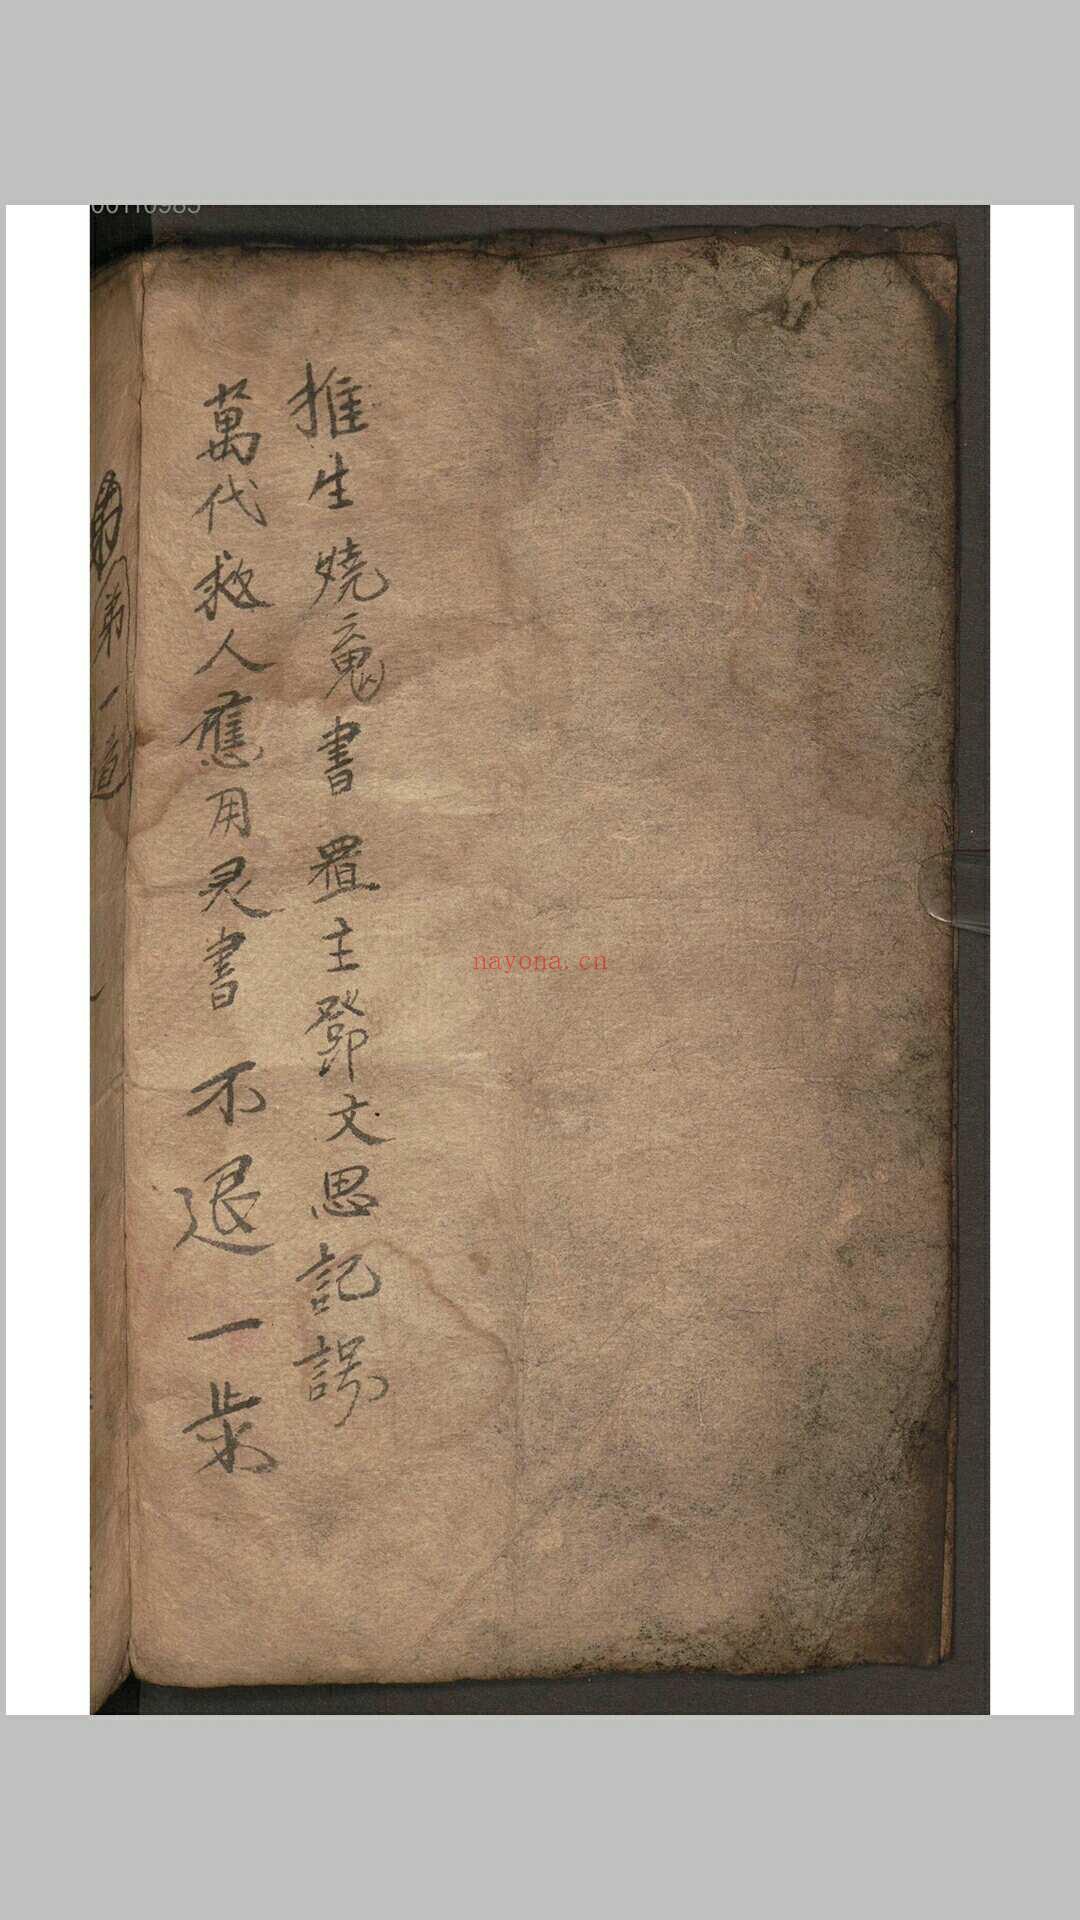 推生燒䰟書 置主鄧文思記號
萬代救人應用灵書 不退一步
第一道
nayona.cn